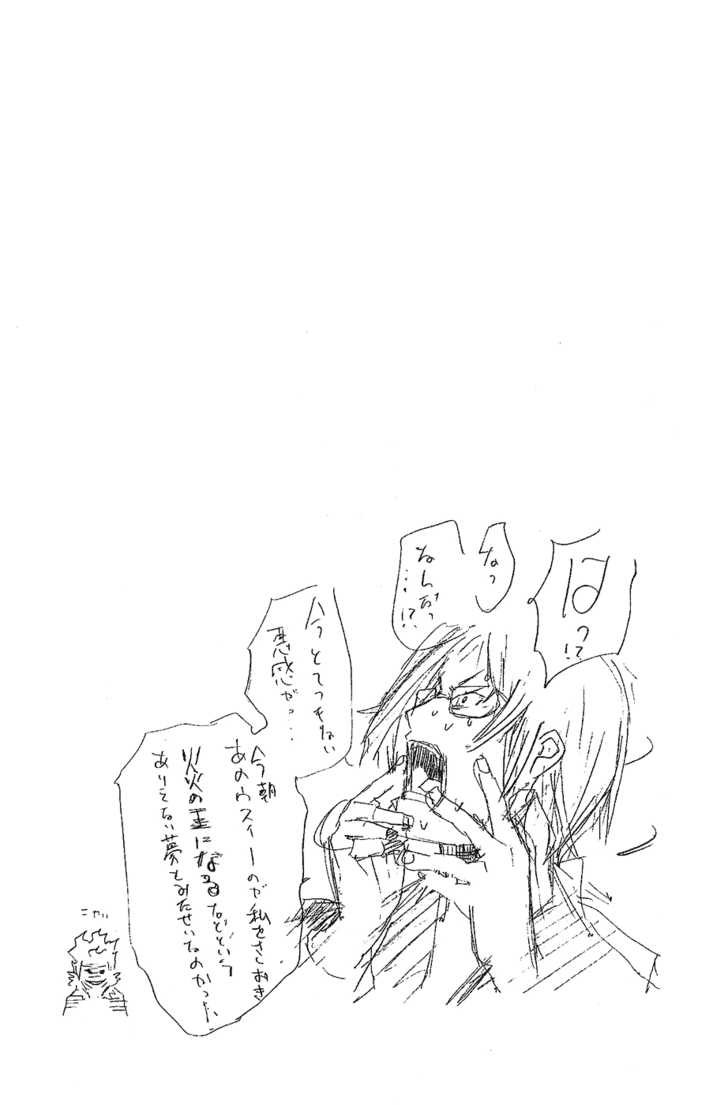 はっ!?
なっ
なんだっ
…!?
今とてつもない
悪感が…
今朝
あのウスィーのが私をさしおき
炎の王になるなどという
ありえない夢をみたせいなのかっ…
ニヤリ